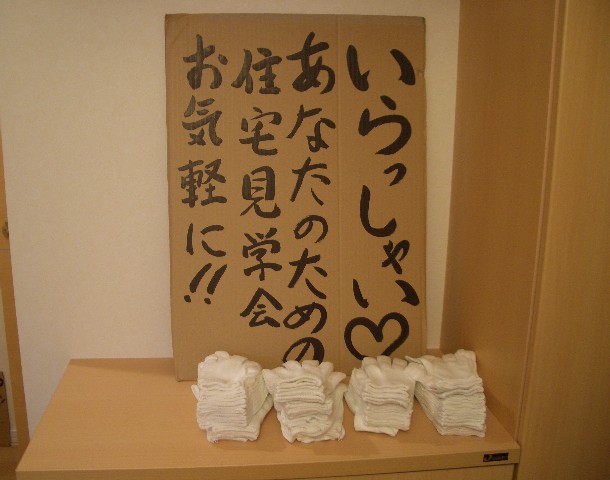 いらっしゃい♡
あなたのための
住宅見学会
お気軽に!!